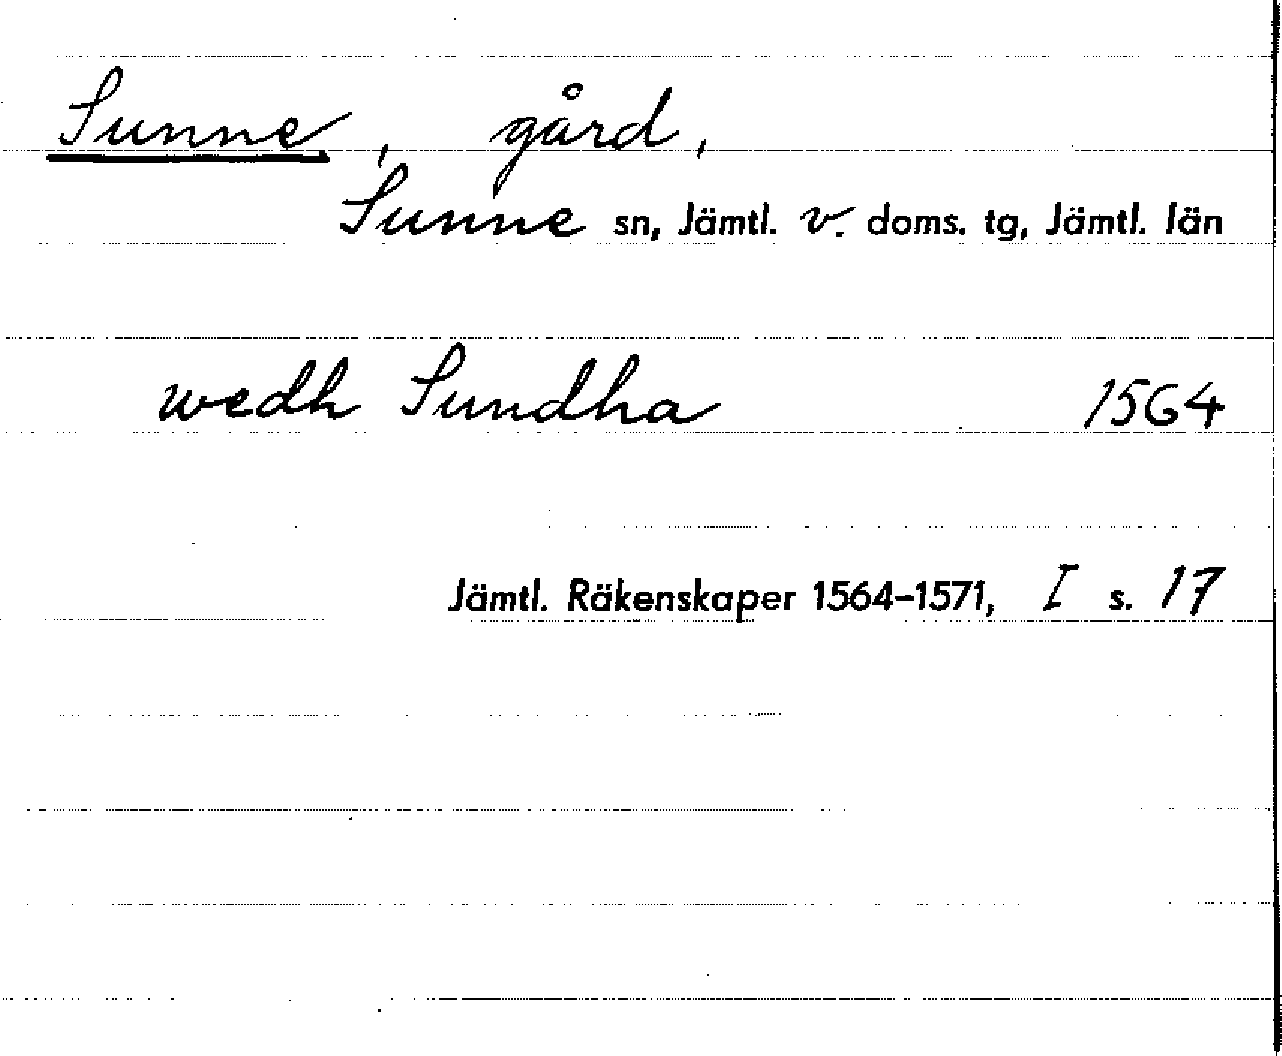 Sunne, gård,
Sunne sn, Jämtl. v. doms. tg, Jämtl. län
wedh Sundha 1564
Jämtl. Räkenskaper 1564-1571, I s. 17